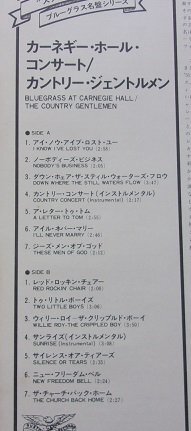 ブルーグラス名盤シリーズ
カーネギー・ホール・
コンサート/
カントリー・ジェントルメン
BLUEGRASS AT CARNEGIE HALL /
THE COUNTRY GENTLEMEN
● SIDE A
1. アイ・ノウ・アイブ・ロスト・ユー
I KNOW I'VE LOST YOU (2:58)
2. ノーボディーズ・ビジネス
NOBODY'S BUSINESS
3. ダウン・ホェア・ザ・スティル・ウォーターズ・フロウ
DOWN WHERE THE STILL WATERS FLOW (3:47)
4. カントリー・コンサート(インストルメンタル)
COUNTRY CONCERT (Instrumental) (2:17)
5. ア・レター・トゥ・トム
A LETTER TO TOM (2:55)
6. アイル・ネバー・マリー
I'LL NEVER MARRY (2:46)
7. ジーズ・メン・オブ・ゴッド
THESE MEN OF GOD (2:13)
● SIDE B
1. レッド・ロッキン・チェアー
RED ROCKIN' CHAIR (2:00)
2. トゥ・リトル・ボーイズ
TWO LITTLE BOYS (3:06)
3. ウィリー・ロイ-ザ・クリップルド・ボーイ
WILLIE ROY-THE CRIPPLED BOY (3:50)
4. サンライズ(インストルメンタル)
SUNRISE (Instrumental) (2:08)
5. サイレンス・オア・ティアーズ
SILENCE OR TEARS (2:35)
6. ニュー・フリーダム・ベル
NEW FREEDOM BELL (2:24)
7. ザ・チャーチ・バック・ホーム
THE CHURCH BACK HOME (2:27)